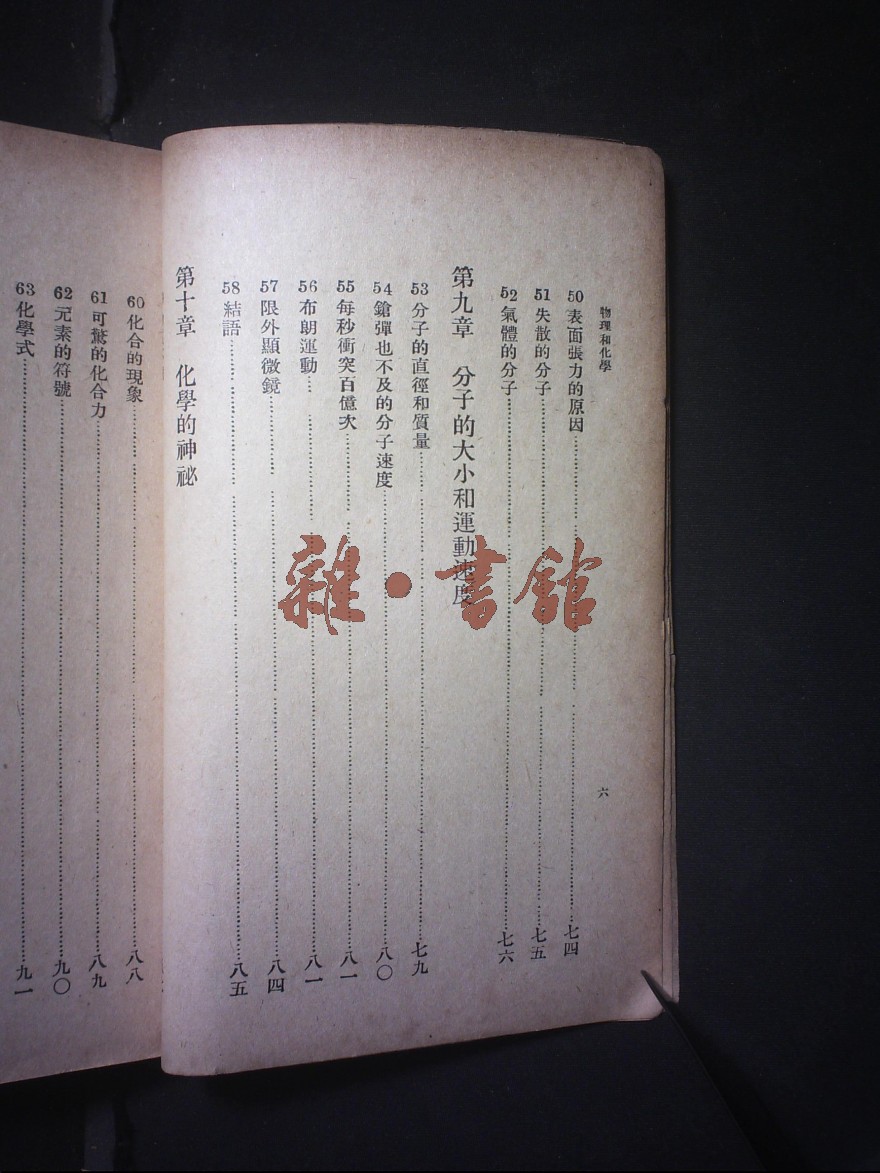 物理和化學
六
50 表面張力的原因……七四
51 失散的分子……七五
52 氣體的分子……七六
第九章 分子的大小和運動速度
53 分子的直徑和質量……七九
54 鎗彈也不及的分子速度……八〇
55 每秒衝突百億次……八一
56 布朗運動……八一
57 限外顯微鏡……八四
58 結語……八五
第十章 化學的神祕
60 化合的現象……八八
61 可驚的化合力……八九
62 元素的符號……九〇
63 化學式……九一
雜·書館